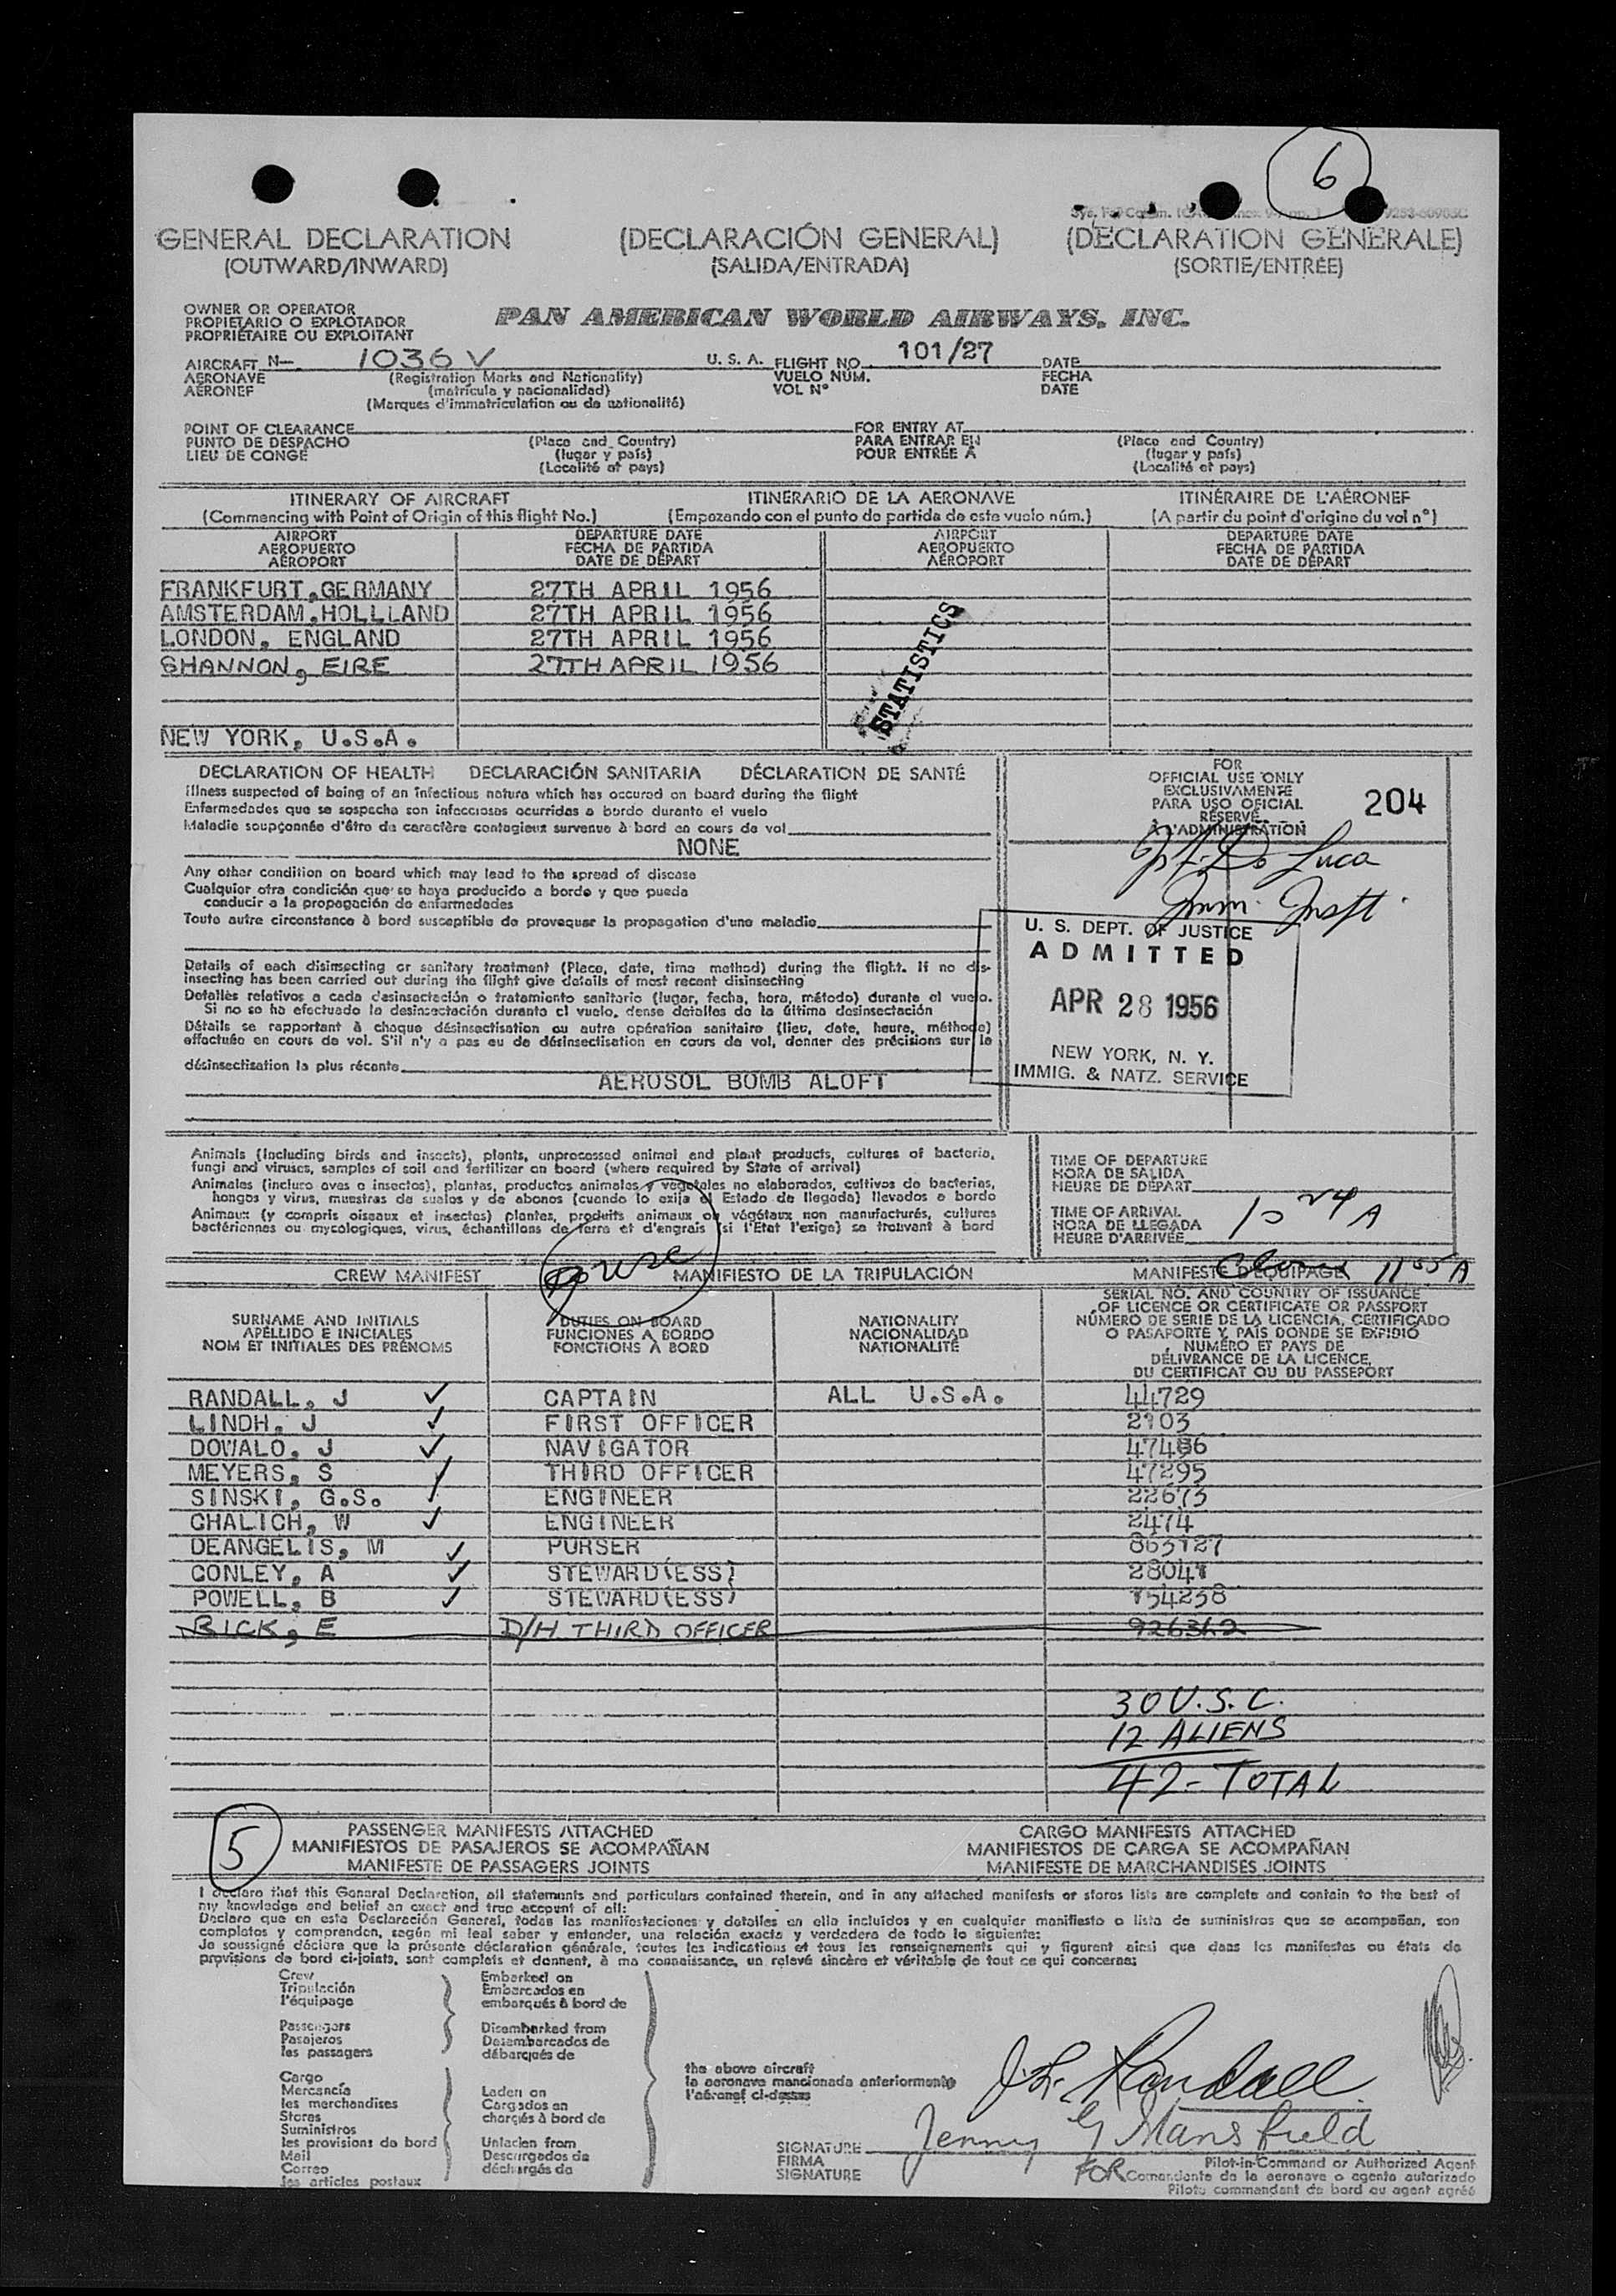 6
GENERAL DECLARATION (DECLARACIÓN GENERAL) (DECLARATION GENERALE)
(OUTWARD/INWARD) (SALIDA/ENTRADA) (SORTIE/ENTRÉE)
OWNER OR OPERATOR
PROPIETARIO O EXPLOTADOR
PROPRIÉTAIRE OU EXPLOITANT
PAN AMERICAN WORLD AIRWAYS, INC.
AIRCRAFT N— 1036V U. S. A. FLIGHT NO. 101/27 DATE
AERONAVE (Registration Marks and Nationality) VUELO NÚM. FECHA
AÉRONEF (matrícula y nacionalidad) VOL N° DATE
(Marques d'immatriculation ou de nationalité)
POINT OF CLEARANCE FOR ENTRY AT
PUNTO DE DESPACHO (Place and Country) PARA ENTRAR EN (Place and Country)
LIEU DE CONGE (lugar y país) POUR ENTRÉE A (lugar y país)
(Localité et pays) (Localité et pays)
ITINERARY OF AIRCRAFT ITINERARIO DE LA AERONAVE ITINÉRAIRE DE L'AÉRONEF
(Commencing with Point of Origin of this flight No.) (Empezando con el punto de partida de este vuelo núm.) (A partir du point d'origine du vol n°)
AIRPORT DEPARTURE DATE AIRPORT DEPARTURE DATE
AEROPUERTO FECHA DE PARTIDA AEROPUERTO FECHA DE PARTIDA
AÉROPORT DATE DE DÉPART AÉROPORT DATE DE DÉPART
FRANKFURT,GERMANY 27TH APRIL 1956
AMSTERDAM,HOLLLAND 27TH APRIL 1956
LONDON, ENGLAND 27TH APRIL 1956
SHANNON, EIRE 27TH APRIL 1956
STATISTICS
NEW YORK, U.S.A.
DECLARATION OF HEALTH DECLARACIÓN SANITARIA DÉCLARATION DE SANTÉ
Illness suspected of being of an infectious nature which has occured on board during the flight
Enfermedades que se sospecha son infecciosas ocurridas a bordo durante el vuelo
Maladie soupçonnée d'être de caractère contagieux survenue à bord en cours de vol
NONE
Any other condition on board which may lead to the spread of disease
Cualquier otra condición que se haya producido a bordo y que pueda
conducir a la propagación de enfermedades
Toute autre circonstance à bord susceptible de provoquer la propagation d'une maladie
Details of each disinsecting or sanitary treatment (Place, date, time method) during the flight. If no dis-
insecting has been carried out during the flight give details of most recent disinsecting
Detalles relativos a cada desinsectación o tratamiento sanitario (lugar, fecha, hora, método) durante el vuelo.
Si no se ha efectuado la desinsectación durante el vuelo, dense detalles de la última desinsectación
Détails se rapportant à chaque désinsectisation ou autre opération sanitaire (lieu, date, heure, méthode)
effectuée en cours de vol. S'il n'y a pas eu de désinsectisation en cours de vol, donner des précisions sur la
désinsectisation la plus récente
AEROSOL BOMB ALOFT
FOR
OFFICIAL USE ONLY
EXCLUSIVAMENTE
PARA USO OFICIAL
RÉSERVÉ
À L'ADMINISTRATION
204
De Luca
Imm. Inspt.
U. S. DEPT. OF JUSTICE
ADMITTED
APR 28 1956
NEW YORK, N. Y.
IMMIG. & NATZ. SERVICE
Animals (Including birds and insects), plants, unprocessed animal and plant products, cultures of bacteria,
fungi and viruses, samples of soil and fertilizer on board (where required by State of arrival)
Animales (incluso aves o insectos), plantas, productos animales y vegetales no elaborados, cultivos de bacterias,
hongos y virus, muestras de suelos y de abonos (cuando lo exija el Estado de llegada) llevados a bordo
Animaux (y compris oiseaux et insectes) plantes, produits animaux ou végétaux non manufacturés, cultures
bactériennes ou mycologiques, virus, échantillons de terre et d'engrais (si l'Etat l'exige) se trouvant à bord
TIME OF DEPARTURE
HORA DE SALIDA
HEURE DE DÉPART
TIME OF ARRIVAL
HORA DE LLEGADA
HEURE D'ARRIVÉE
10 24 A
11 55 A
CREW MANIFEST MANIFIESTO DE LA TRIPULACIÓN MANIFESTE D'ÉQUIPAGE
SURNAME AND INITIALS
APELLIDO E INICIALES
NOM ET INITIALES DES PRÉNOMS
DUTIES ON BOARD
FUNCIONES A BORDO
FONCTIONS À BORD
NATIONALITY
NACIONALIDAD
NATIONALITÉ
SERIAL NO. AND COUNTRY OF ISSUANCE
OF LICENCE OR CERTIFICATE OR PASSPORT
NÚMERO DE SERIE DE LA LICENCIA, CERTIFICADO
O PASAPORTE Y PAÍS DONDE SE EXPIDIÓ
NUMÉRO ET PAYS DE
DÉLIVRANCE DE LA LICENCE,
DU CERTIFICAT OU DU PASSEPORT
RANDALL, J ✓ CAPTAIN ALL U.S.A. 44729
LINDH, J ✓ FIRST OFFICER 2903
DOWALO, J ✓ NAVIGATOR 47486
MEYERS, S ✓ THIRD OFFICER 47295
SINSKI, G.S. ✓ ENGINEER 22673
CHALICH, W ✓ ENGINEER 2474
DEANGELIS, M ✓ PURSER 863127
CONLEY, A ✓ STEWARD(ESS)
POWELL, B ✓ STEWARD(ESS)
BICK, E D/H THIRD OFFICER
30 U.S.C.
12 ALIENS
42 - TOTAL
5
PASSENGER MANIFESTS ATTACHED CARGO MANIFESTS ATTACHED
MANIFIESTOS DE PASAJEROS SE ACOMPAÑAN MANIFIESTOS DE CARGA SE ACOMPAÑAN
MANIFESTE DE PASSAGERS JOINTS MANIFESTE DE MARCHANDISES JOINTS
I declare that this General Declaration, all statements and particulars contained therein, and in any attached manifests or stores lists are complete and contain to the best of
my knowledge and belief an exact and true account of all:
Declaro que en esta Declaración General, todas las manifestaciones y detalles en ella incluidos y en cualquier manifiesto o lista de suministros que se acompañan, son
completos y comprenden, según mi leal saber y entender, una relación exacta y verdadera de todo lo siguiente:
Je soussigné déclare que la présente déclaration générale, toutes les indications et tous les renseignements qui y figurent ainsi que dans les manifestes ou états de
provisions de bord ci-joints, sont complets et donnent, à ma connaissance, un relevé sincère et véritable de tout ce qui concerne:
Crew
Tripulación
l'équipage
Passengers
Pasajeros
les passagers
Cargo
Mercancía
les merchandises
Stores
Suministros
les provisions de bord
Mail
Correo
les articles postaux
Embarked on
Embarcados en
embarqués à bord de
Disembarked from
Desembarcados de
débarqués de
Laden on
Cargados en
chargés à bord de
Unladen from
Descargados de
déchargés de
the above aircraft
la aeronave mancionada anteriormente
l'aéronef ci-dessus
J.L. Randall
Jenny G Mansfield
SIGNATURE
FIRMA
SIGNATURE
FOR
Pilot-in-Command or Authorized Agent
Comandante de la aeronave o agente autorizado
Pilote commandant de bord ou agent agréé